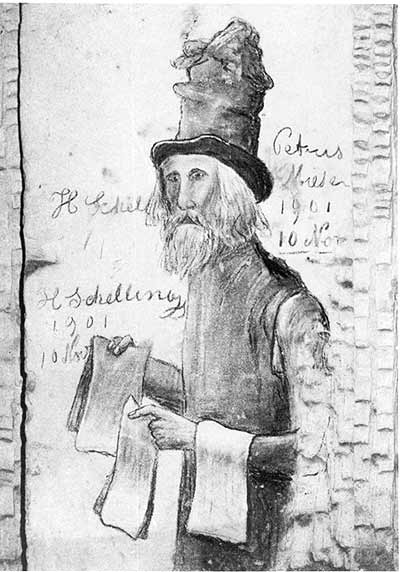 H Schel
H Schelling
1901
10 Nov
Petrus
1901
10 Nov